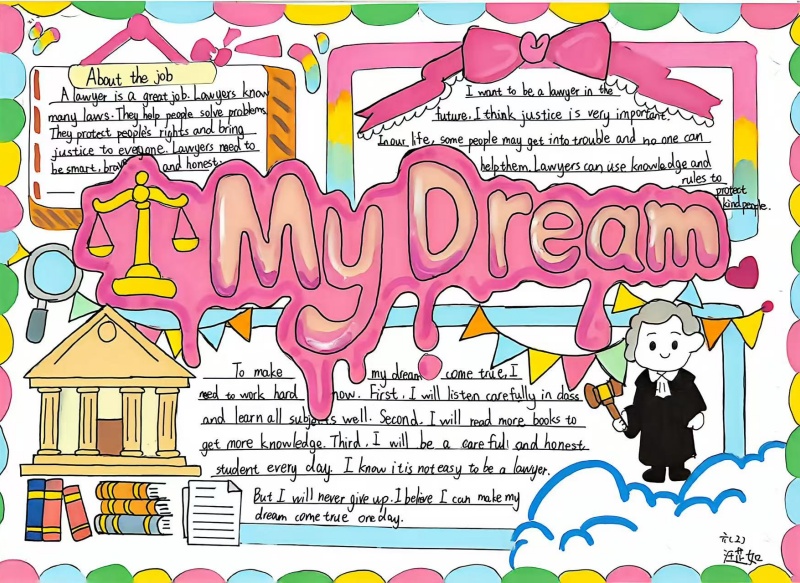 About the job
A lawyer is a great job. Lawyers know
many laws. They help people solve problems.
They protect people's rights and bring
justice to everyone. Lawyers need to
be smart, brave and honest.
I want to be a lawyer in the
future. I think justice is very important.
In our life, some people may get into trouble and no one can
help them. Lawyers can use knowledge and
rules to
protect
kind people.
My Dream
To make my dream come true, I
need to work hard now. First, I will listen carefully in class
and learn all subjects well. Second, I will read more books to
get more knowledge. Third, I will be a careful and honest
student every day. I know it is not easy to be a lawyer.
But I will never give up. I belive I can make my
dream come true one day.
六(2)